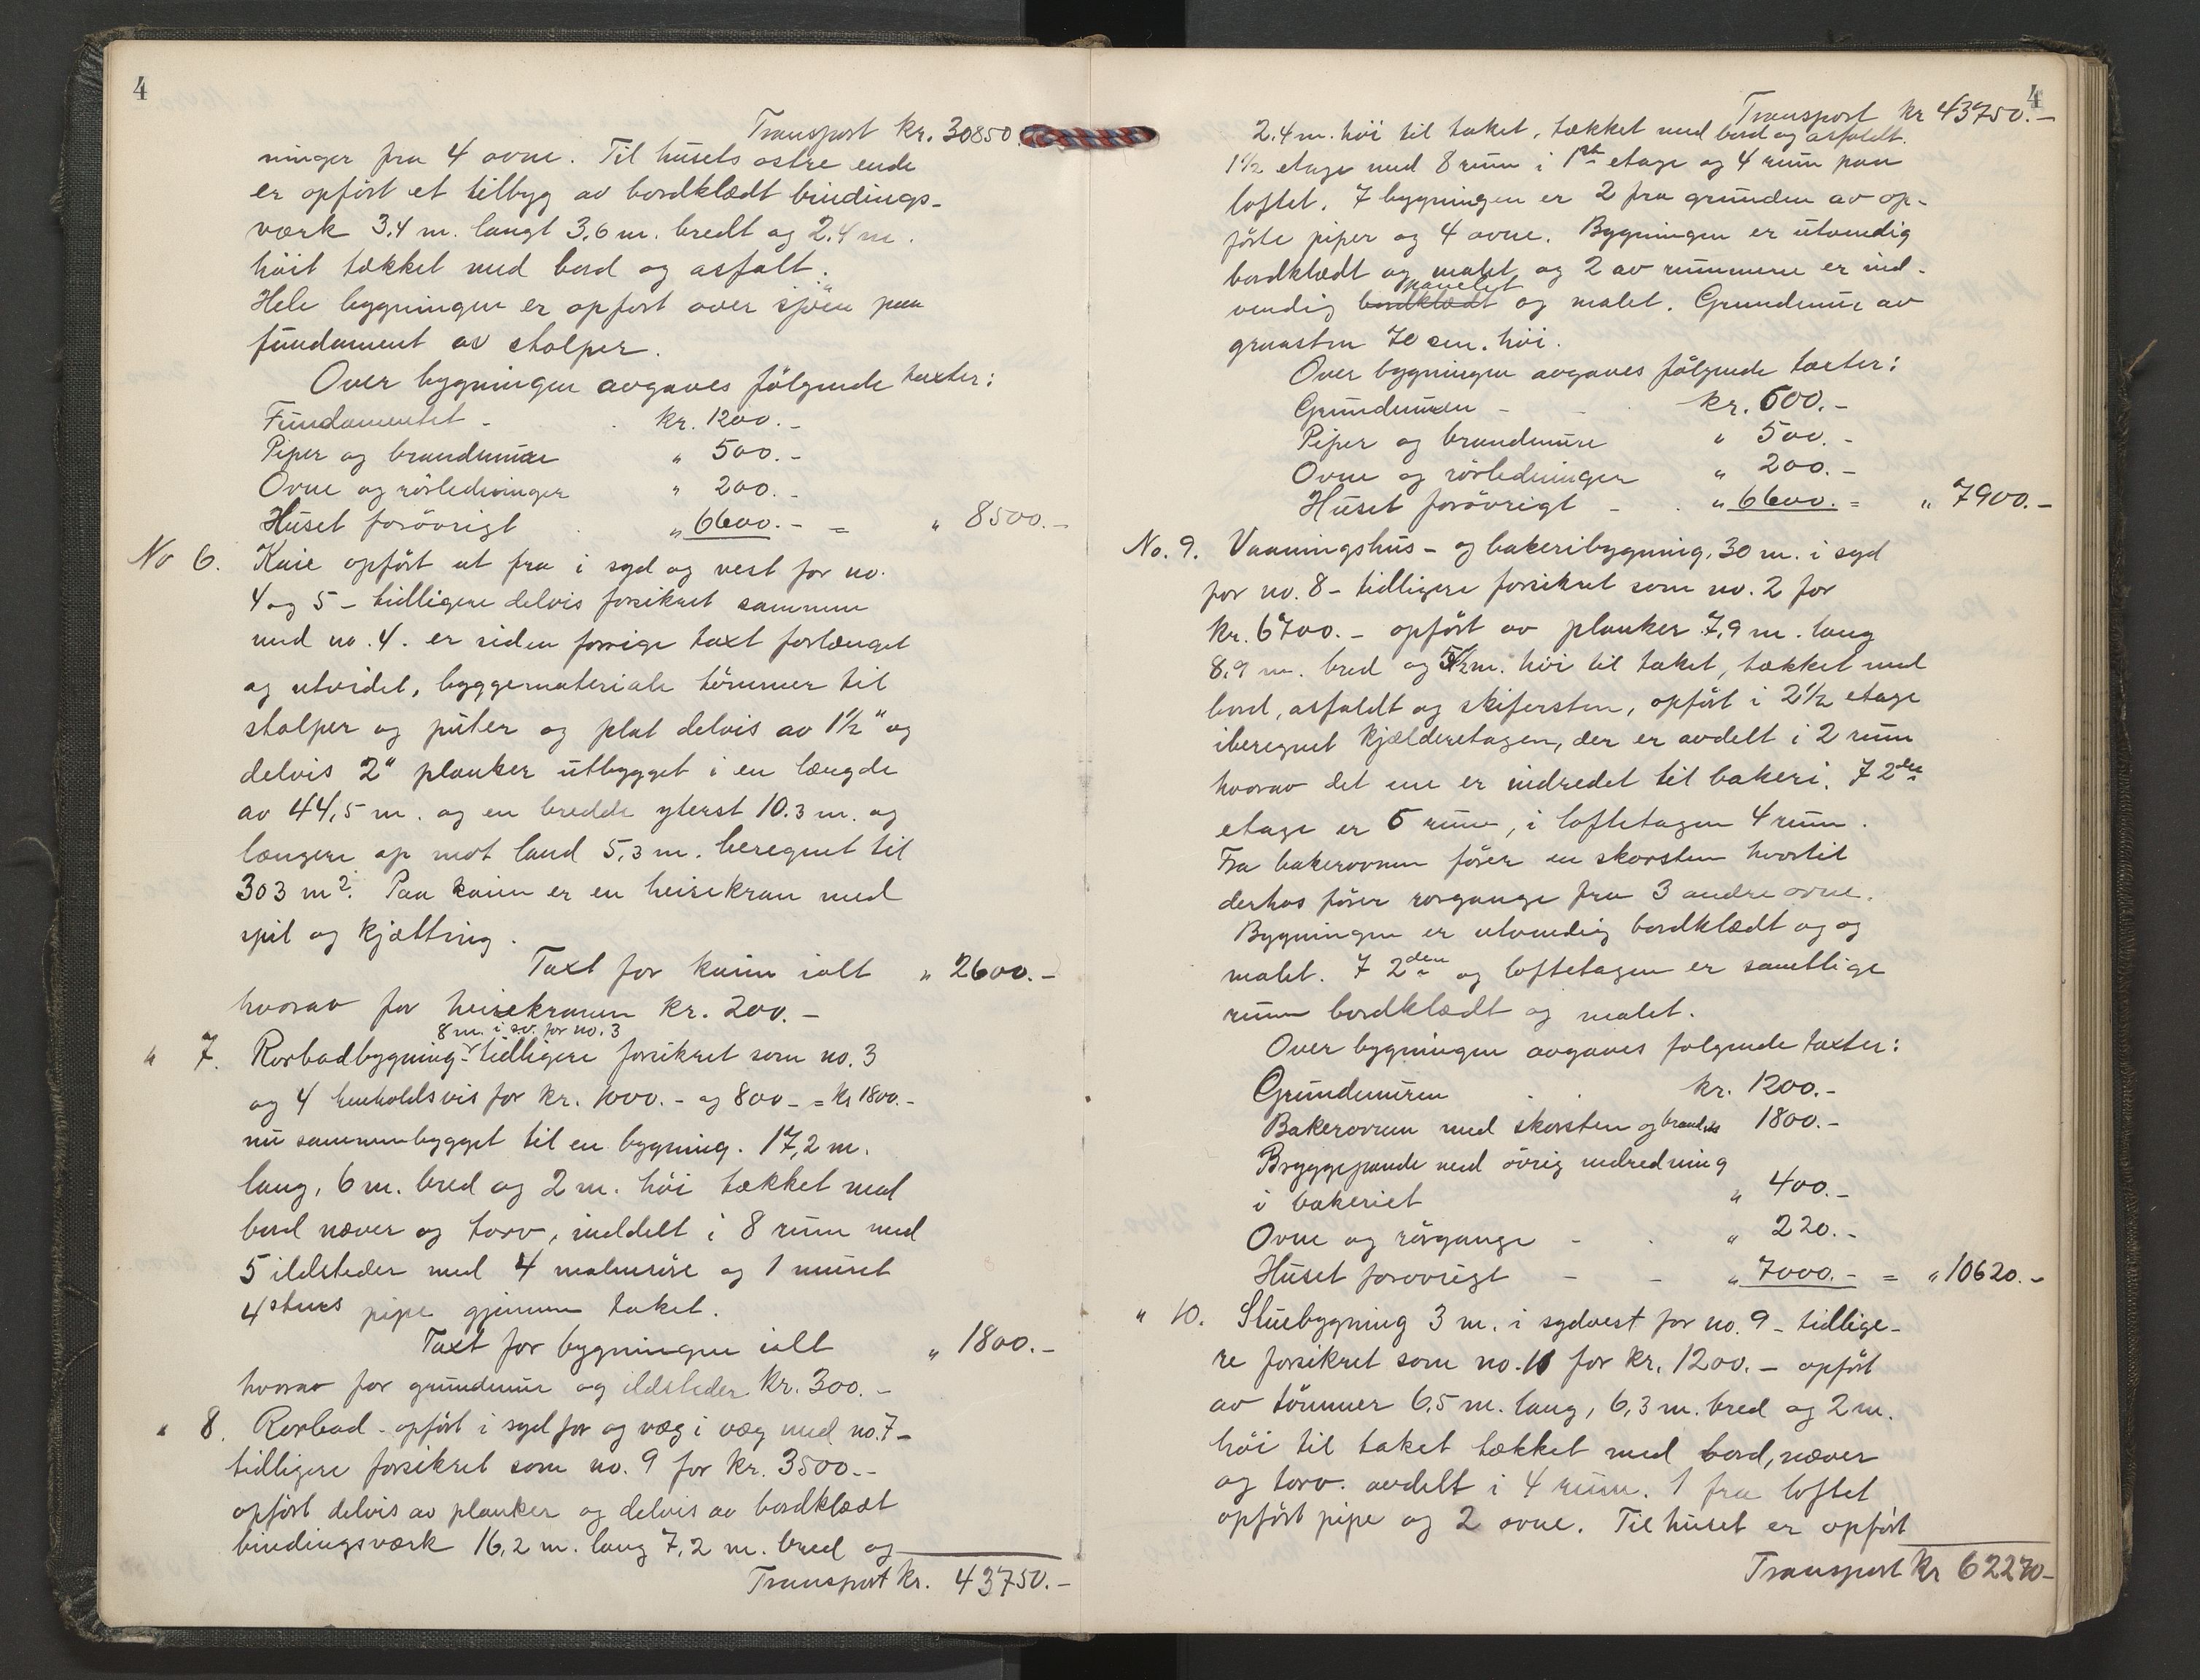 4
Transport kr. 30850.
ninger fra 4 ovne. Til husets østre ende
er opført et tilbyg av bordklædt bindings-
værk 3,4 m. langt 3,6 m. bredt og 2,4 m.
høit tækket med bord og asfalt.
Hele bygningen er opført over sjøen paa
fundament av stolper.
Over bygningen avgaves følgende taxter:
Fundamentet - kr. 1200.-
Piper og brandmure " 500.-
Ovne og rørledninger " 200.-
Huset forøvrigt " 6600.- = " 8500.-
No 6. Kaie opført ut fra i syd og vest for no.
4 og 5 - tidligere delvis forsikret sammen
med no. 4. er siden forrige taxt forlænget
og utvidet, byggemateriale tømmer til
stolper og puter og plat delvis av 1½" og
delvis 2" planker utbygget i en længde
av 44,5 m. og en bredde yterst 10.3 m. og
længere op mot land 5,3 m. beregnet til
303 m². Paa kaien er en heisekran med
spil og kjætting.
Taxt for kaien ialt " 2600.-
hvorav for heisekranen kr. 200.-
8 m. i sv. for no. 3
" 7. Rorbodbygning - tidligere forsikret som no. 3
og 4 henholdsvis for kr. 1000.- og 800 - = kr 1800.-
nu sammenbygget til en bygning. 17,2 m.
lang, 6 m. bred og 2 m. høi tækket med
bord næver og torv, inddelt i 8 rum med
5 ildsteder med 4 malmrøre og 1 muret
4 stens pipe gjennem taket.
Taxt for bygningen ialt " 1800.-
hvorav for grundmur og ildsteder kr. 300.-
" 8. Rorbod - opført i syd for og væg i væg med no. 7 -
tidligere forsikret som no. 9 for kr. 3500.-
opført delvis av planker og delvis av bordklædt
bindingsværk 16,2 m. lang 7,2 m. bred og
Transport kr. 43750.-
4
Transport kr 43750.-
2.4 m. høi til taket, tækket med bord og asfaldt.
1½ etage med 8 rum i 1ste etage og 4 rum paa
loftet. I bygningen er 2 fra grunden av op-
førte piper og 4 ovne. Bygningen er utvendig
bordklædt og malet og 2 av rummene er ind-
panelet
vendig bordklædt og malet. Grundmur av
graasten 70 cm. høi.
Over bygningen avgaves følgende taxter:
Grundmuren - kr. 600.-
Piper og brandmure " 500.-
Ovne og rørledninger " 200.-
Huset forøvrigt - " 6600. = " 7900.-
No. 9. Vaaningshus- og bakeribygning, 30 m. i syd
for no. 8 - tidligere forsikret som no. 2 for
kr. 6700.- opført av planker 7,9 m. lang
8,9 m. bred og 5½ m. høi til taket, tækket med
bord, asfaldt og skifersten, opført i 2½ etage
iberegnet kjælderetagen, der er avdelt i 2 rum
hvorav det ene er indredet til bakeri. I 2den
etage er 5 rum, i loftetagen 4 rum.
Fra bakerovnen fører en skorsten hvortil
derhos fører rørgange fra 3 andre ovne.
Bygningen er utvendig bordklædt og og
malet. I 2den og loftetagen er samtlige
rum bordklædt og malet.
Over bygningen avgaves følgende taxter:
Grundmuren kr. 1200.-
Bakerovnen med skorsten og 1800.-
Bryggepande med øvrig indredning
i bakeriet " 400.-
Ovne og rørgange - " 220.-
Huset forøvrigt - - " 7000.- = " 10620.-
" 10. Stuebygning 3 m. i sydvest for no. 9 - tidlige-
re forsikret som no. 11 for kr. 1200.- opført
av tømmer 6,5 m. lang, 6,3 m. bred og 2 m.
høi til taket tækket med bord, næver
og torv. avdelt i 4 rum. 1 fra loftet
opført pipe og 2 ovne. Til huset er opført
Transport kr 62270-